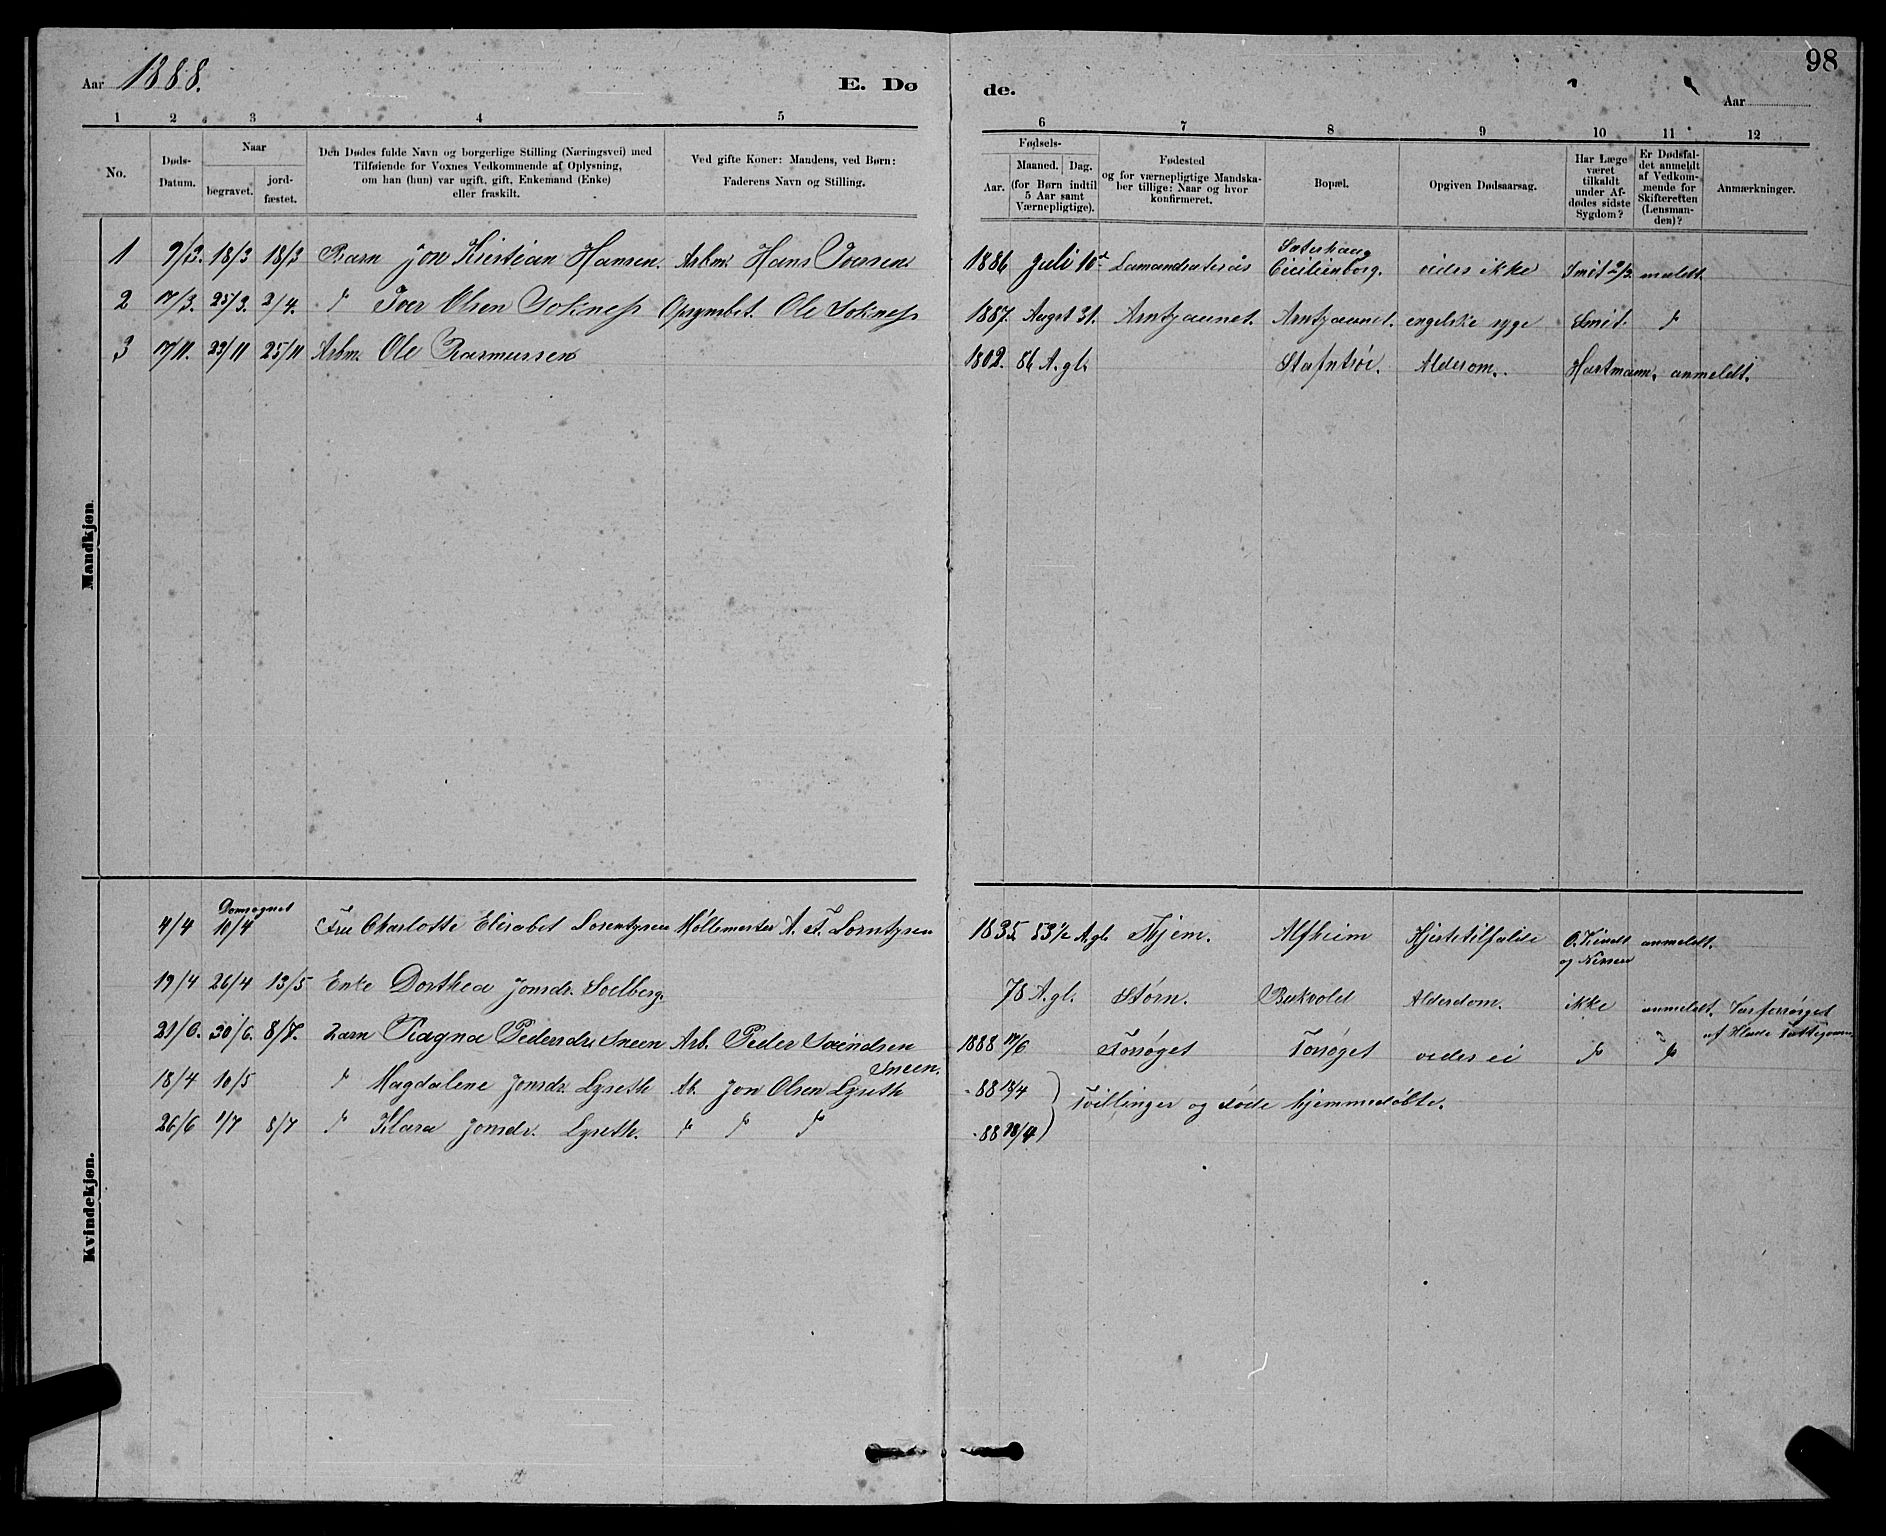 98
Aar 1888. E. Dø de. Aar
1 2 3 4 5 6 7 8 9 10 11 12
No.
Døds-Datum.
Naar
begravet.
jord-fæstet.
Den Dødes fulde Navn og borgerlige Stilling (Næringsvei) med
Tilføiende for Voxnes Vedkommende af Oplysning,
om han (hun) var ugift, gift, Enkemand (Enke)
eller fraskilt.
Ved gifte Koner: Mandens, ved Børn:
Faderens Navn og Stilling.
Fødsels-
Aar.
Maaned. Dag.
(for Børn indtil
5 Aar samt
Værnepligtige).
Fødested
og for værnepligtige Mandska-
ber tillige: Naar og hvor
konfirmeret.
Bopæl.
Opgiven Dødsaarsag.
Har Læge
været
tilkaldt
under Af-
dødes sidste
Sygdom?
Er Dødsfal-
det anmeldt
af Vedkom-
mende for
Skifteretten
(Lensman-
den)?
Anmærkninger.
Mandkjøn
1 9/3. 18/3 18/3 Barn Jon Kristian Hansen. Arbm. Hans Iversen. 1886 Juli 10 Cecilienborg. vides ikke meldt
2 17/3. 25/3. 2/4. " Iver Olsen Sokness Ole Sokness 1887. Augst 31. Arntzaunet. Arntzaunet. engelske syge Smit. "
3 17/11. 23/11 25/11 Arbm. Ole Rasmussen 1802. 86 A. gl. Alderdom. Hartmann. anmeldt.
Kvindekjøn.
Domsognet
4/4 10/4 Fru Charlotte Elisabet Lorentzen Møllemester A. F. Lorntzen 1835 53½ A. gl. Alfheim Hjertetilfælde anmeldt.
19/4 26/4 13/5 Enke Dorthea Jonsdr. Solberg. 78 A. gl. Støren. Bakvold Alderdom. ikke anmeldt.
30/6. 8/7. Barn Ragna Pedersdr. Sneen Arb. Peder Svendsen
Sneen. 1888 17/6 vides ei " "
18/4 10/5 " Magdalene Jonsdr. Lyseth Ab. Jon Olsen Lyseth - 88 18/4
Tvillinger og døde hjemmedøbte.
26/6 1/7 8/7 " Klara Jonsdr. Lyseth. " " " - 88 18/4